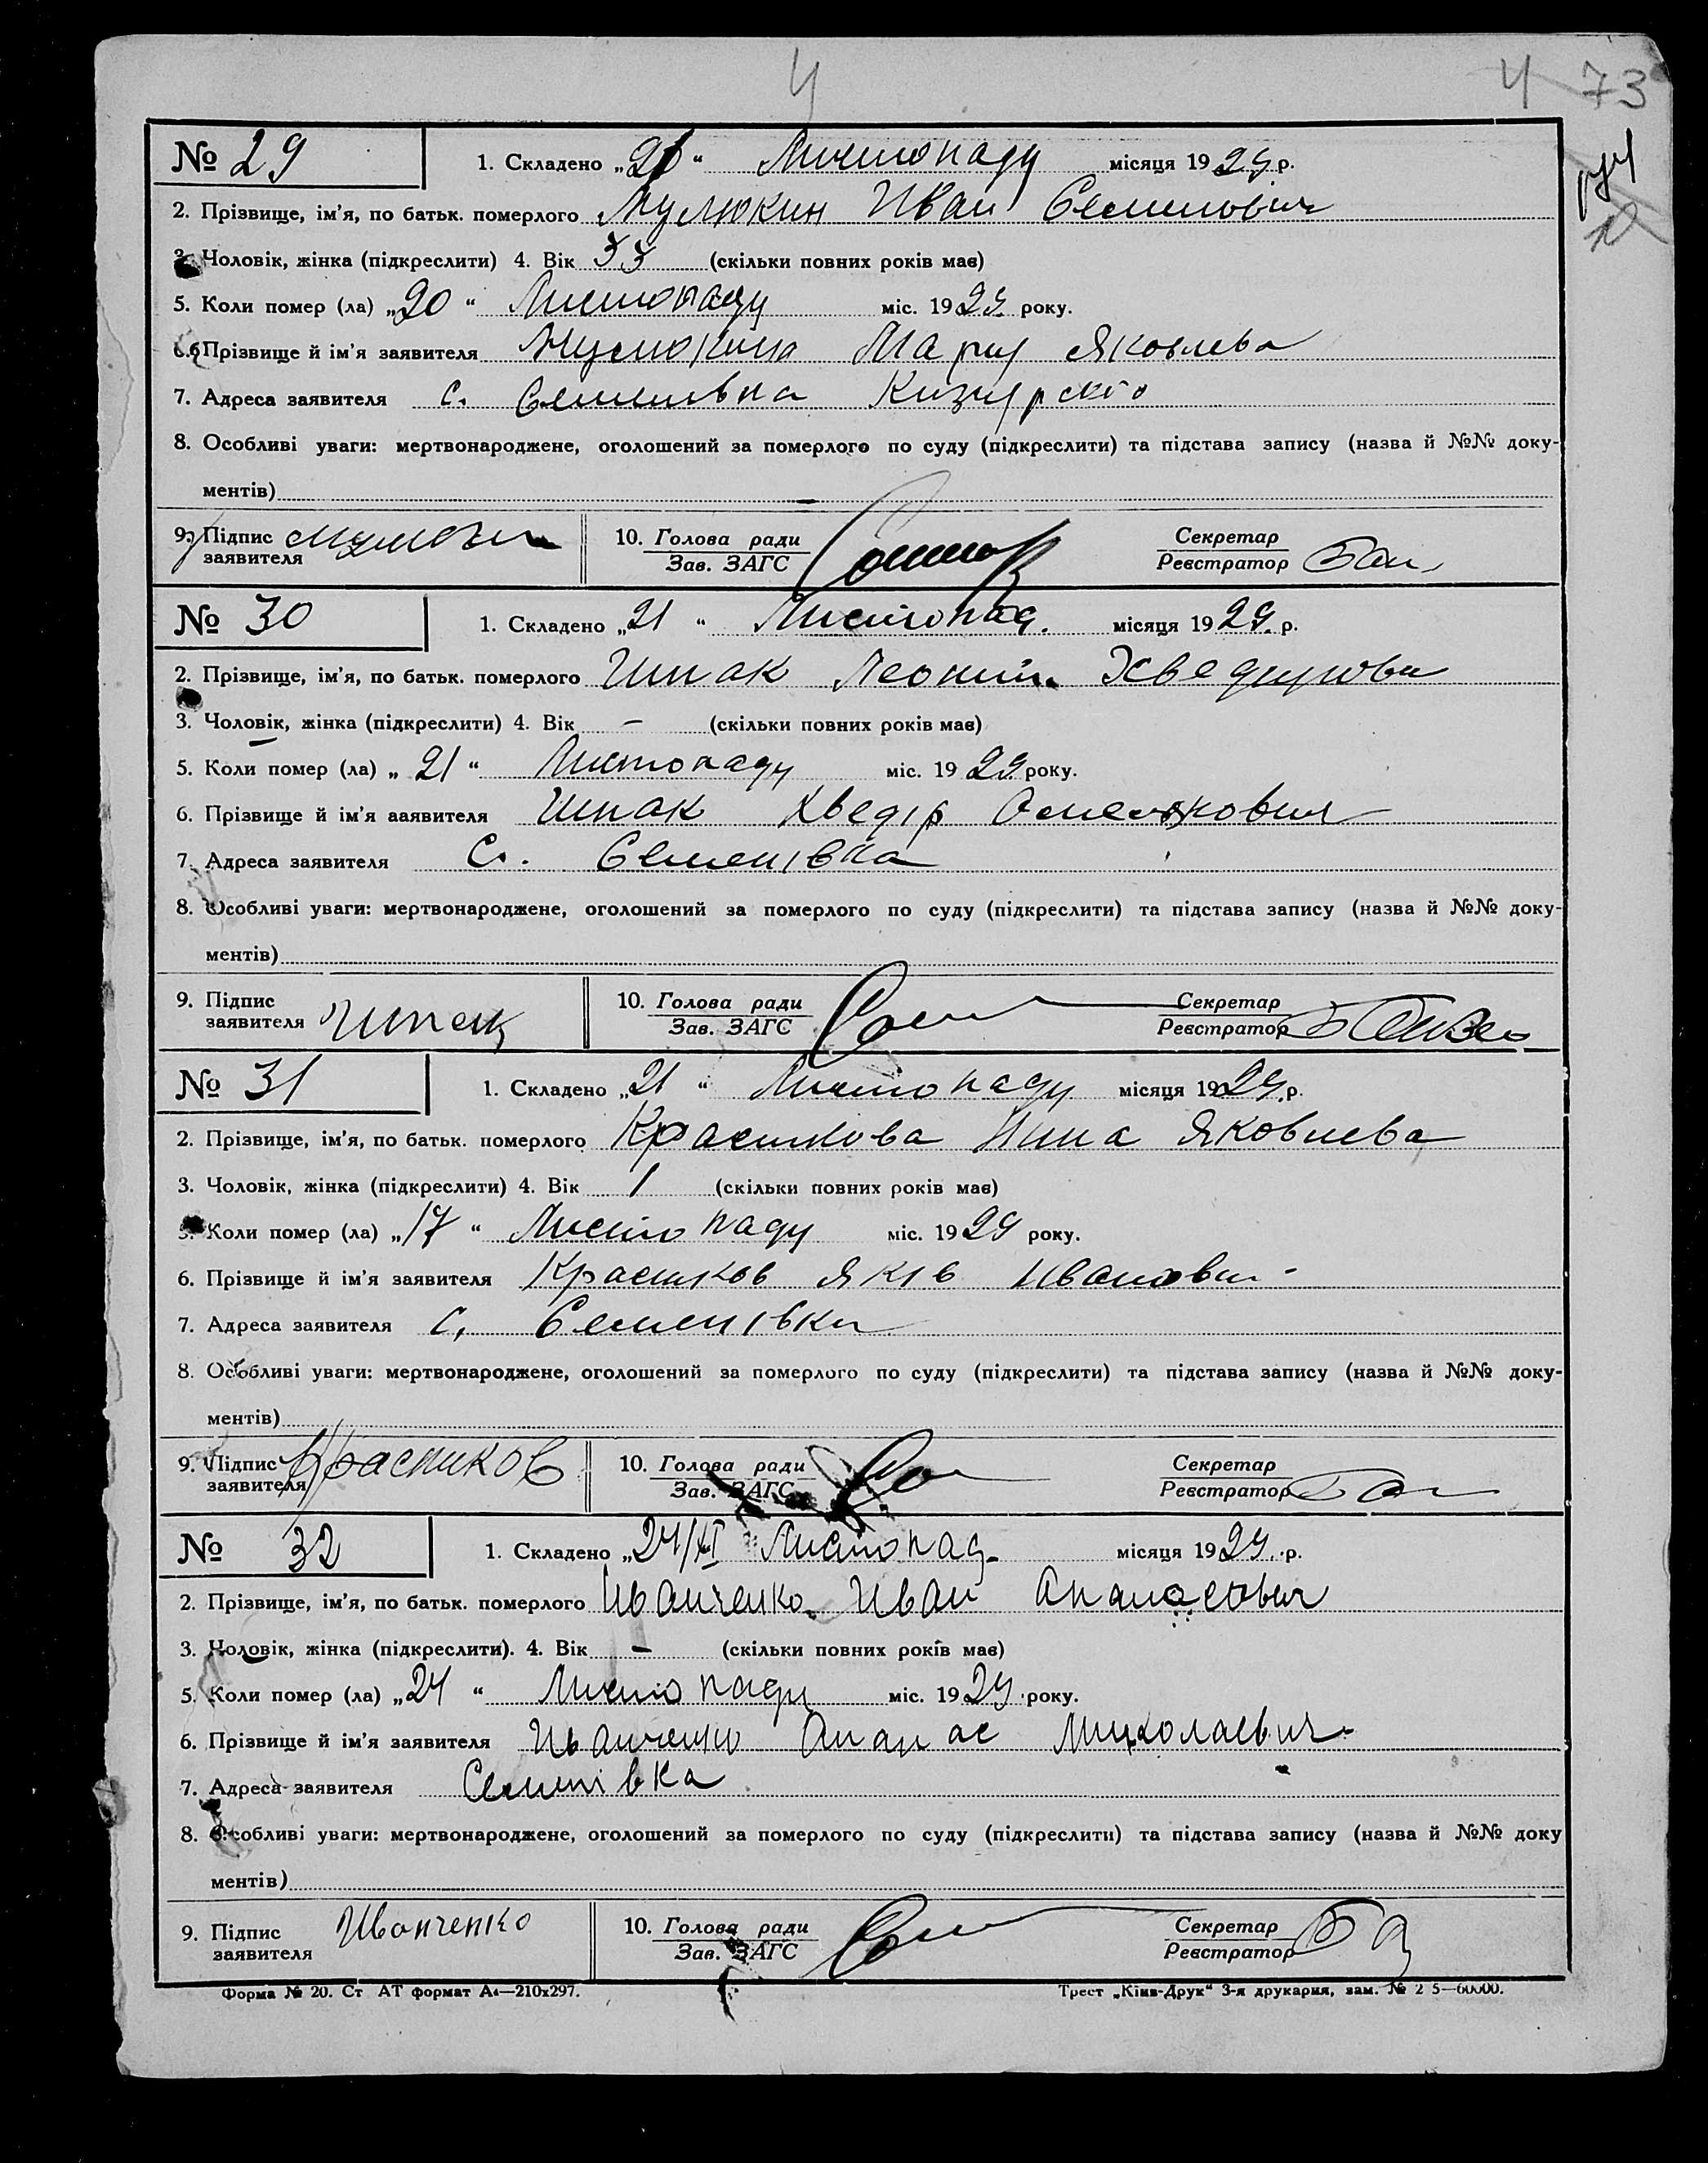 4
4 73
№ 29 1. Складено „21“ Листопаду місяця 1929 р.
2. Прізвище, ім’я, по батьк. померлого Мулюкин Иван Семенович
3. Чоловік, жінка (підкреслити) 4. Вік 33 (скільки повних років має)
5. Коли помер (ла) „20“ Листопаду міс. 1929 року.
6. Прізвище й ім’я заявителя Мулюкина Мария Яковлева
7. Адреса заявителя с. Семенивка
8. Особливі уваги: мертвонароджене, оголошений за померлого по суду (підкреслити) та підстава запису (назва й №№ доку-
ментів)
9. Підпис заявителя 10. Голова ради Секретар
Зав. ЗАГС Реєстратор
№ 30 1. Складено „21“ Листопад. місяця 1929. р.
2. Прізвище, ім’я, по батьк. померлого Шпак Хведирови
3. Чоловік, жінка (підкреслити) 4. Вік – (скільки повних років має)
5. Коли помер (ла) „21“ Листопаду міс. 1929 року.
6. Прізвище й ім’я ааявителя Шпак Хведір Омелькович
7. Адреса заявителя С. Семенівка
8. Особливі уваги: мертвонароджене, оголошений за померлого по суду (підкреслити) та підстава запису (назва й №№ доку-
ментів)
9. Підпис заявителя Шпак 10. Голова ради Секретар
Зав. ЗАГС Реєстратор
№ 31 1. Складено „21“ Листопаду місяця 1929. р.
2. Прізвище, ім’я, по батьк. померлого Красникова Нина Яковлева
3. Чоловік, жінка (підкреслити) 4. Вік 1 (скільки повних років має)
5. Коли помер (ла) „17“ Листопаду міс. 1929 року.
6. Прізвище й ім’я заявителя Красников Яків Иванович
7. Адреса заявителя с. Семенівка
8. Особливі уваги: мертвонароджене, оголошений за померлого по суду (підкреслити) та підстава запису (назва й №№ доку-
ментів)
9. Підпис заявителя Красников 10. Голова ради Секретар
Зав. ЗАГС Реєстратор
№ 32 1. Складено „24/XI Листопад. місяця 1929. р.
2. Прізвище, ім’я, по батьк. померлого Иванченко Иван Апанасович
3. Чоловік, жінка (підкреслити). 4. Вік – (скільки повних років має)
5. Коли помер (ла) „24“ Листопаду міс. 1929 року.
6. Прізвище й ім’я заявителя Иванченко Апанас Миколаевич
7. Адреса заявителя Семенівка
8. Особливі уваги: мертвонароджене, оголошений за померлого по суду (підкреслити) та підстава запису (назва й №№ доку
ментів)
9. Підпис заявителя Иванченко 10. Голова ради Секретар
Зав. ЗАГС Реєстратор
Форма № 20. Ст АТ формат А4—210х297. Трест „Київ-Друк“ 3-я друкарня, зам. № 2 5—60000.